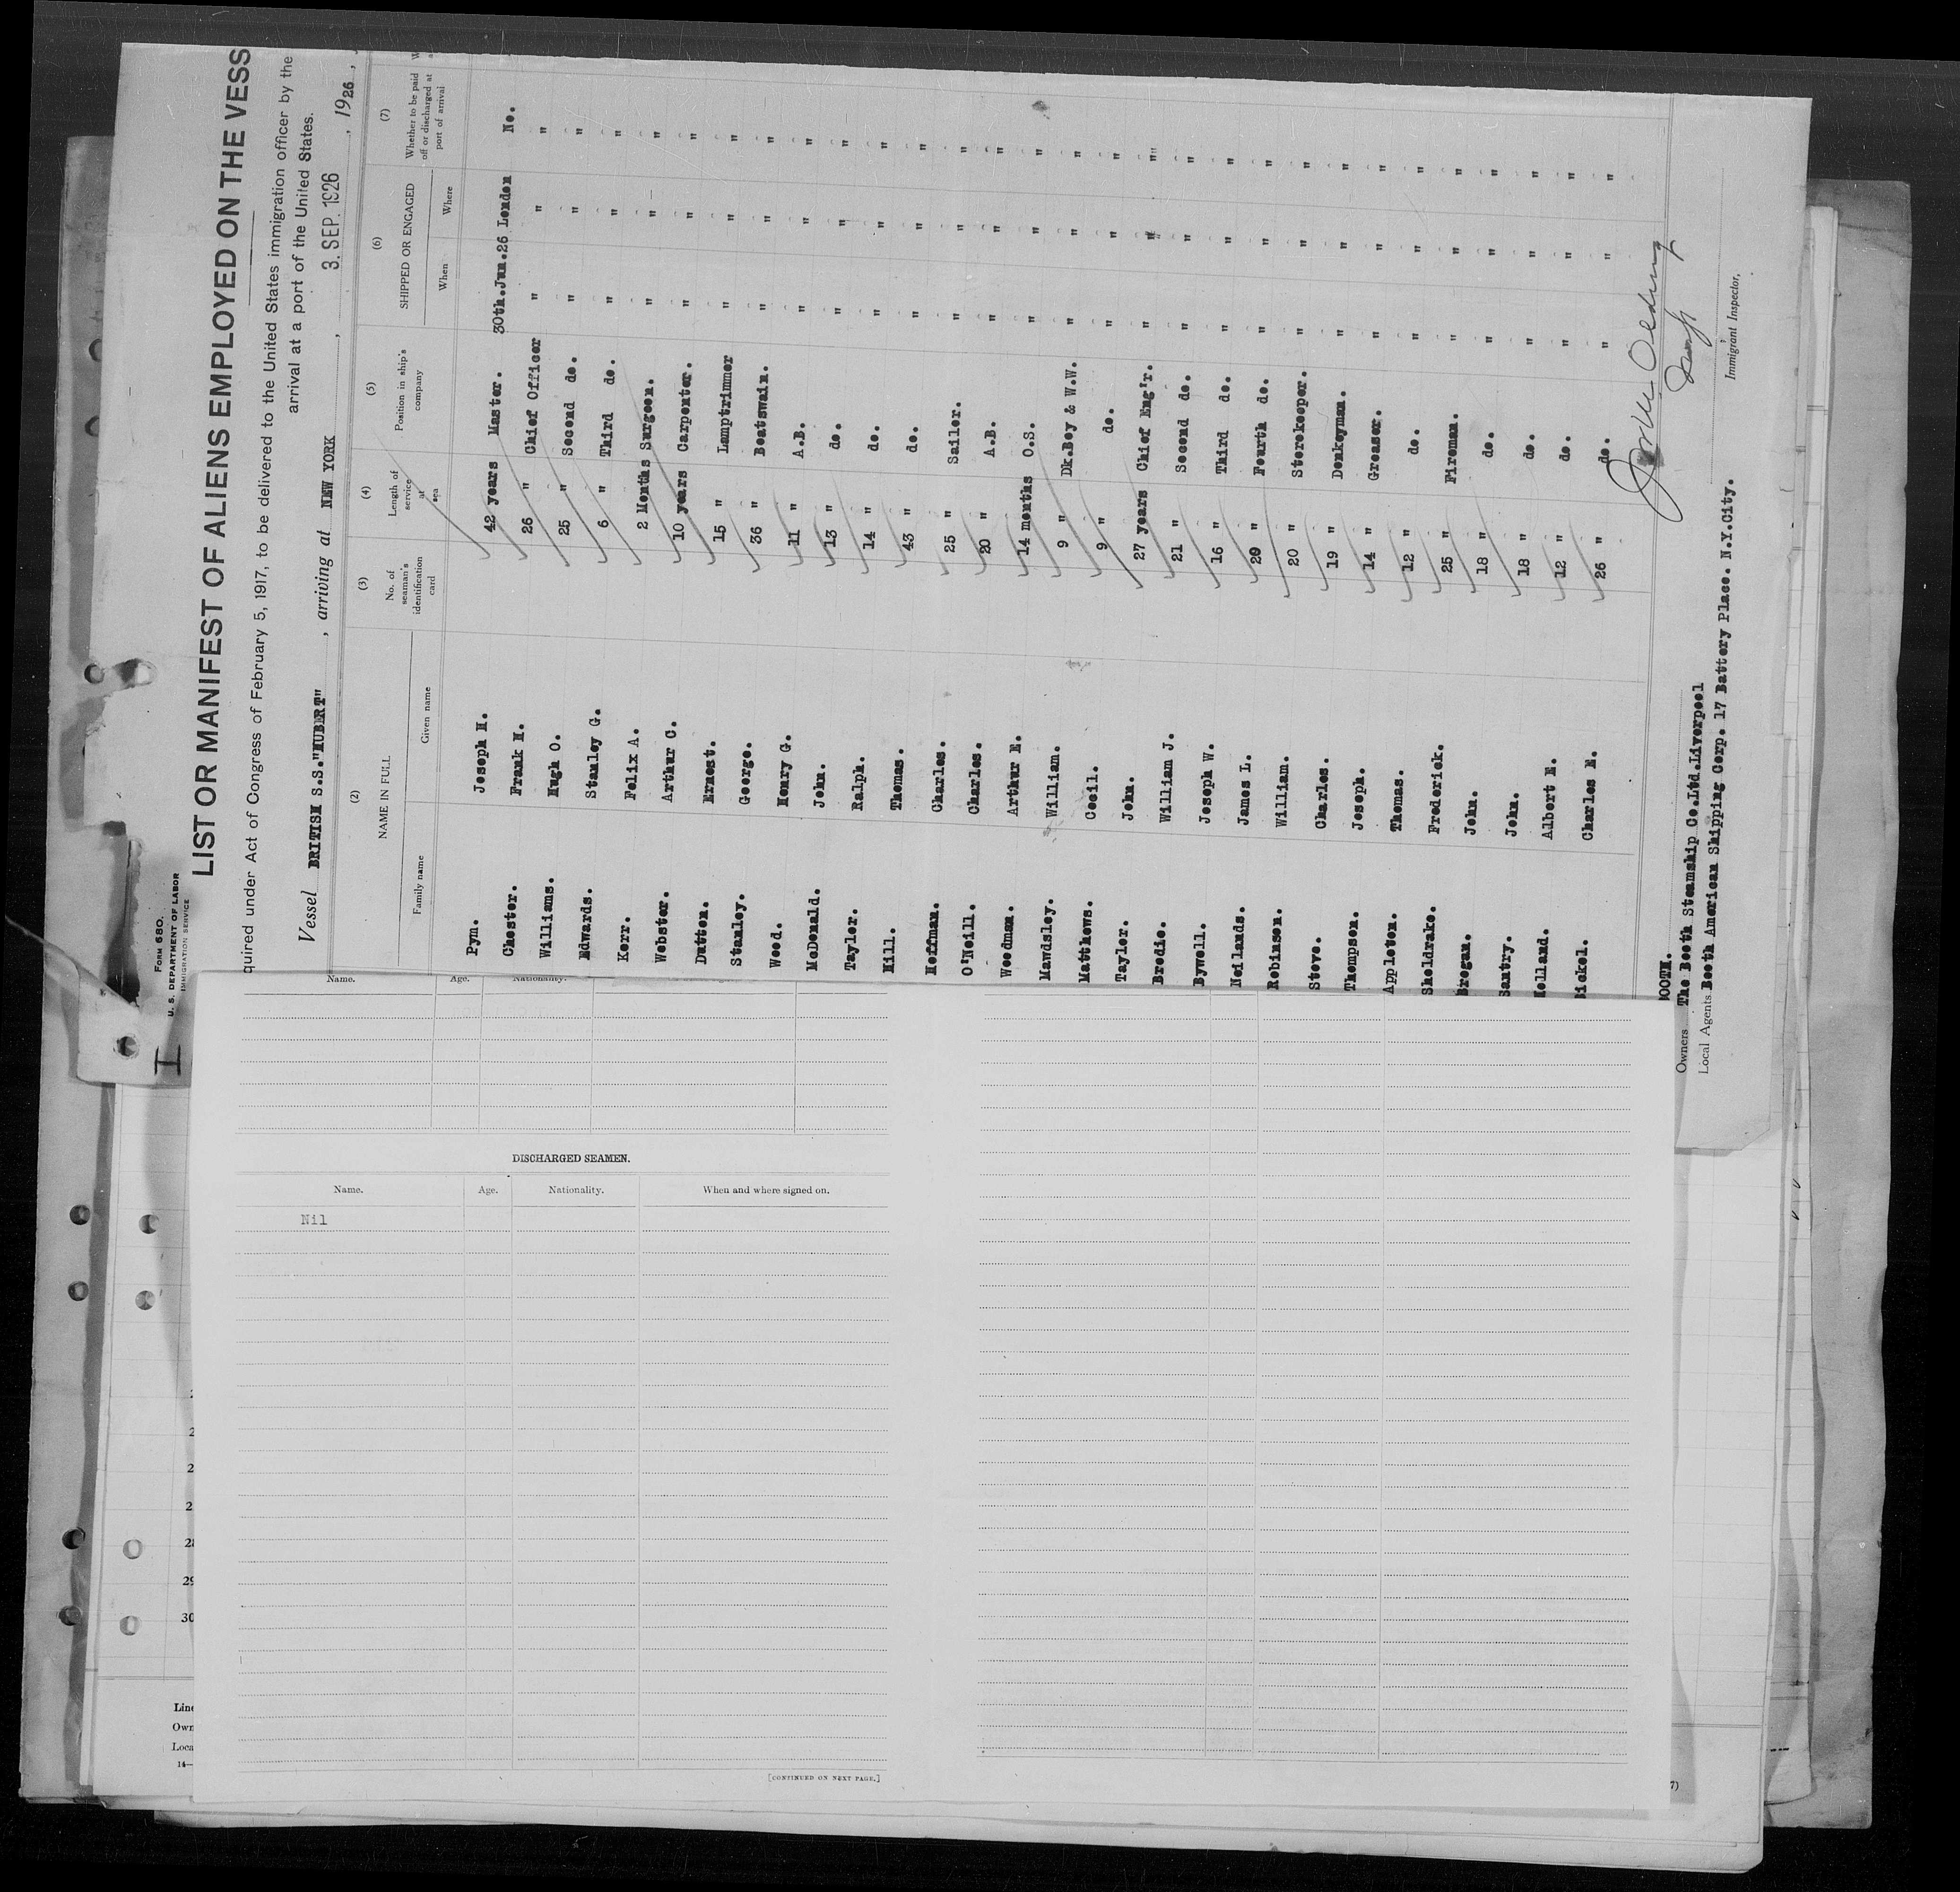 FORM 680.
U. S. DEPARTMENT OF LABOR
IMMIGRATION SERVICE
LIST OR MANIFEST OF ALIENS EMPLOYED ON THE VESS
quired under Act of Congress of February 5, 1917, to be delivered to the United States immigration officer by the
arrival at a port of the United States.
Vessel BRITISH S.S."HUBERT" , arriving at NEW YORK , 3. SEP. 1926 , 1926 ,
(2) (3) (4) (5) (6) (7)
NAME IN FULL No. of seaman's identification card Length of service at sea Position in ship's company SHIPPED OR ENGAGED Whether to be paid off or discharged at port of arrival
Family name Given name When Where
Pym. Joseph H. 42 years Master. 30th.Jun.26 London No.
Chester. Frank H. 26 " Chief Officer " " "
Williams. Hugh O. 25 " Second do. " " "
Edwards. Stanley G. 6 " Third do. " " "
Kerr. Felix A. 2 Months Surgeon. " " "
Webster. Arthur C. 10 years Carpenter. " " "
Dutton. Ernest. 15 " Lamptrimmer " " "
Stanley. George. 36 " Boatswain. " " "
Weed. Henry G. 11 " A.B. " " "
McDonald. John. 13 " do. " " "
Taylor. Ralph. 14 " do. " " "
Hill. Thomas. 43 " do. " " "
Hoffman. Charles. 25 " Sailor. " " "
O'Neill. Charles. 20 " A.B. " " "
Woodman. Arthur E. 14 months O.S. " " "
Mawdsley. William. 9 " Dk.Boy & W.W. " " "
Matthews. Cecil. 9 " do. " " "
Tayler. John. 27 years Chief Eng'r. " " "
Brodie. William J. 21 " Second do. " " "
Bywell. Joseph W. 16 " Third do. " " "
Neilands. James L. 20 " Fourth do. " " "
Robinson. William. 20 " Storekeeper. " " "
Steve. Charles. 19 " Donkeyman. " " "
Thompson. Joseph. 14 " Greaser. " " "
Appleton. Thomas. 12 " do. " " "
Sheldrake. Frederick. 25 " Fireman. " " "
Brogan. John. 18 " do. " " "
Santry. John. 18 " do. " " "
Holland. Albert E. 12 " do. " " "
Bickel. Charles E. 26 " do. " " "
BOOTH.
Owners The Booth Steamship Co.Ltd.Liverpool
Local Agents Booth American Shipping Corp. 17 Battery Place. N.Y.City.
Immigrant Inspector.
Name. Age. Nationality.
DISCHARGED SEAMEN.
Name. Age. Nationality. When and where signed on.
Nil
[CONTINUED ON NEXT PAGE.]
28
29
30
Line
Own
Loca
14—
7)